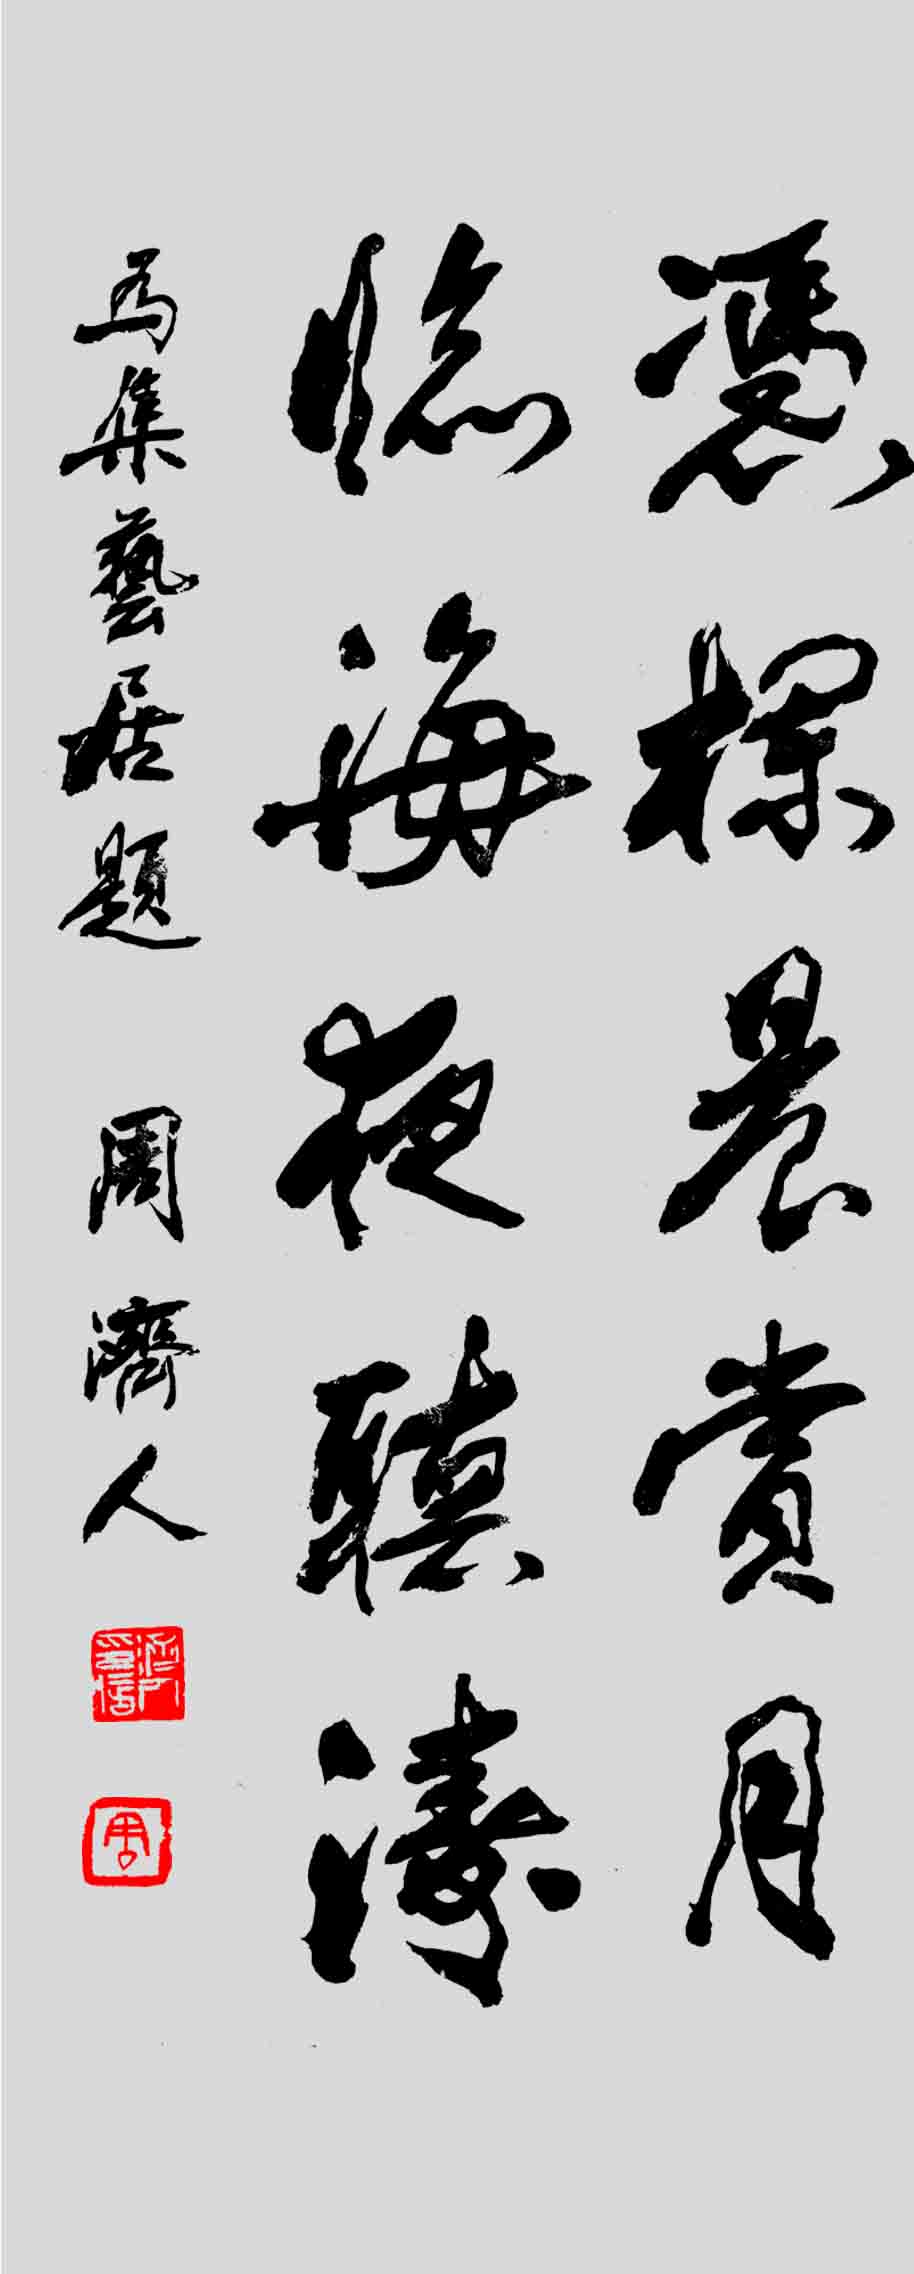 憑欄晨賞月
臨海夜聽濤
為集藝居題 周濟人
周